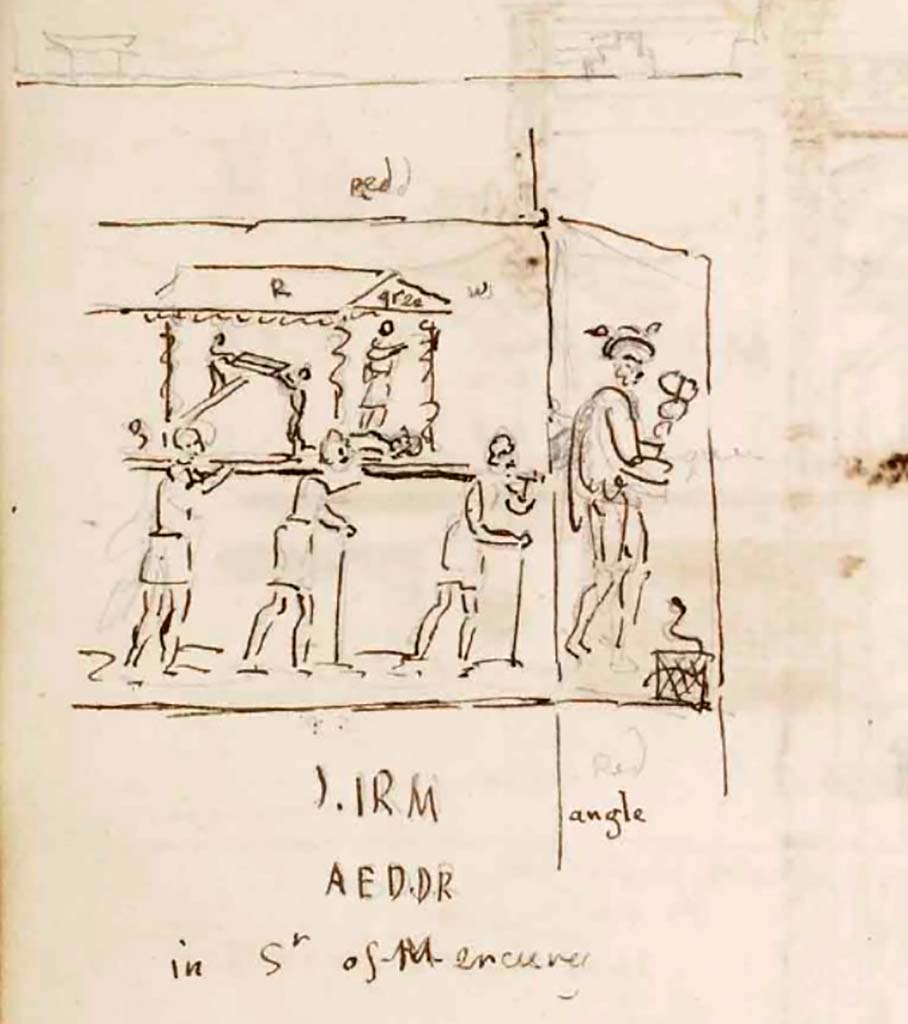 Red
R
gree
W
Red
angle
). IRM
AED.DR
in Sʳ of Mercury